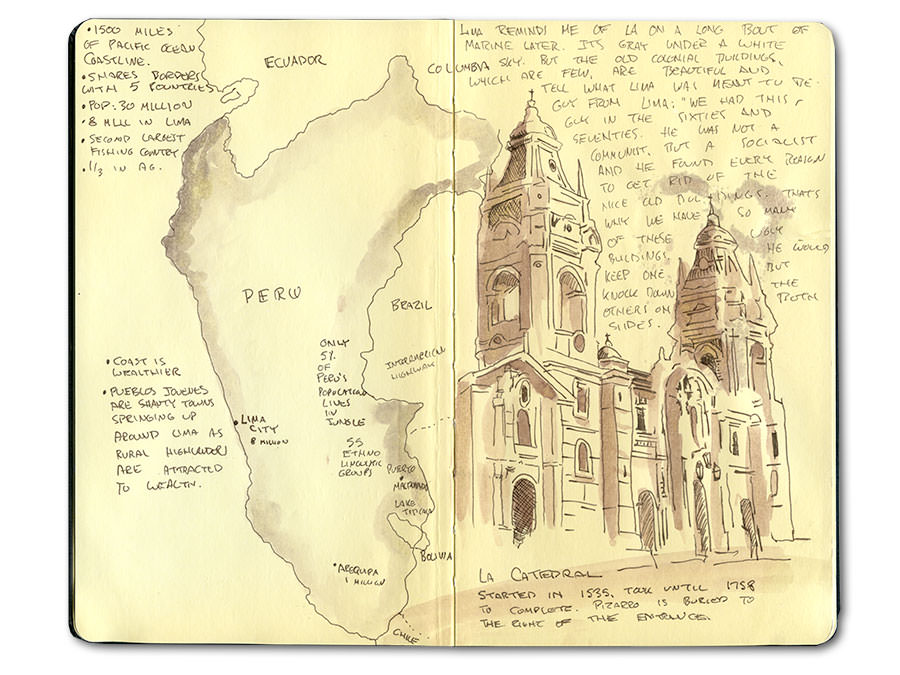 • 1500 MILES
OF PACIFIC OCEAN
COASTLINE.
• SHARES BORDERS
WITH 5 COUNTRIES
• POP: 30 MILLION
• 8 MILL IN LIMA
• SECOND LARGEST
FISHING COUNTRY
• 1/3 IN AG.
ECUADOR
COLUMBIA
PERU
BRAZIL
INTERAMERICAN
HIGHWAY
ONLY
5%
OF
PERU'S
POPULATION
LIVES
IN
JUNGLE
55
ETHNO
LINGUISTIC
GROUPS
• COAST IS
WEALTHIER
• PUEBLOS JOVENES
ARE SHANTY TOWNS
SPRINGING UP
AROUND LIMA AS
RURAL HIGHLANDERS
ARE ATTRACTED
TO WEALTH.
LIMA
CITY
8 MILLION
PUERTO
MALDONADO
LAKE
TITICACA
BOLIVIA
• AREQUIPA
1 MILLION
CHILE
LIMA REMINDS ME OF LA ON A LONG BOUT OF
MARINE LAYER. ITS GRAY UNDER A WHITE
SKY. BUT THE OLD COLONIAL BUILDINGS,
WHICH ARE FEW, ARE BEAUTIFUL AND
TELL WHAT LIMA WAS MEANT TO BE.
GUY FROM LIMA: "WE HAD THIS
GUY IN THE SIXTIES AND
SEVENTIES. HE WAS NOT A
COMMUNIST, BUT A SOCIALIST
AND HE FOUND EVERY REASON
TO GET RID OF THE
NICE OLD BUILDINGS. THATS
WHY WE HAVE SO MANY
OF THESE UGLY
BUILDINGS. HE WOULD
KEEP ONE BUT
KNOCK DOWN THE
OTHERS ON BOTH
SIDES.
LA CATEDRAL
STARTED IN 1535, TOOK UNTIL 1758
TO COMPLETE. PIZARRO IS BURIED TO
THE RIGHT OF THE ENTRANCE.